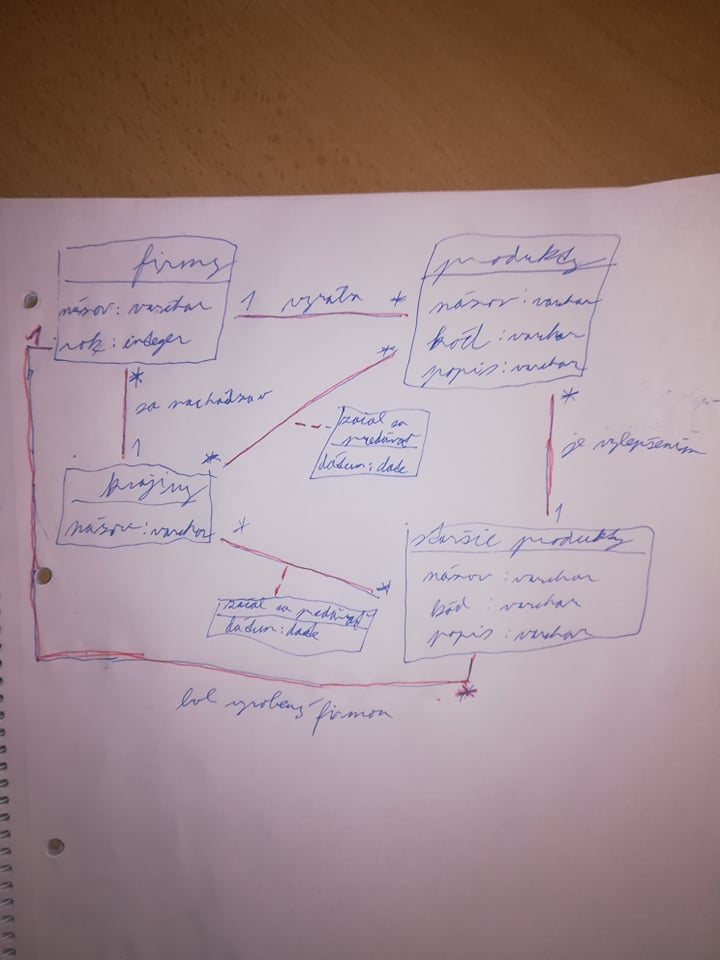 firmy
názov : varchar
rok : integer
1 vyrába *
produkty
názov : varchar
kód : varchar
popis : varchar
1
*
sa nachádzav
1
*
*
začal sa
predávať
dátum : date
*
je vylepšením
1
krajiny
názov : varchar
*
*
začal sa predávať
dátum : date
staršie produkty
názov : varchar
kód : varchar
popis : varchar
*
bol vyrobený firmou